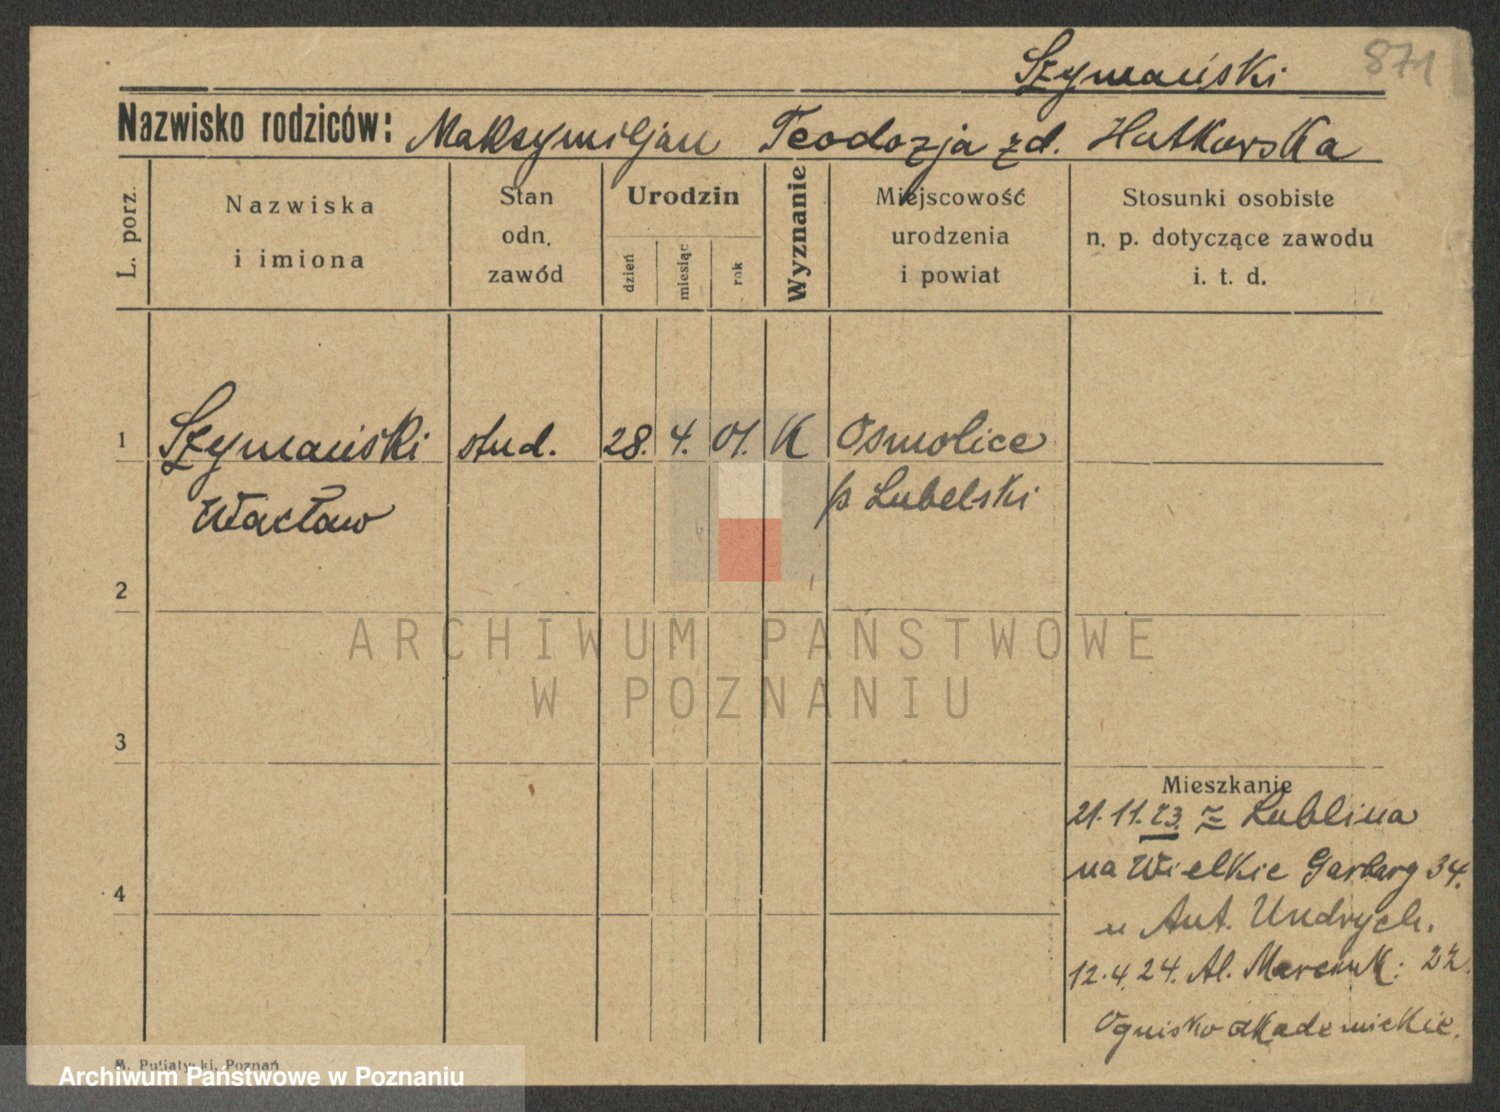 Szymański 871
Nazwisko rodziców: Maksymiljan Teodozja zd. Hutkowska
L. porz.
Nazwiska
i imiona
Stan
odn.
zawód
Urodzin
dzień
miesiąc
rok
Wyznanie
Miejscowość
urodzenia
i powiat
Stosunki osobiste
n. p. dotyczące zawodu
i. t. d.
1 Szymański stud. 28. 4. 01. K Osmolice
Wacław p Lubelski
2
ARCHIWUM PAŃSTWOWE
W POZNANIU
3
Mieszkanie
21.11.23. z Lublina
na Wielkie Garbary 34.
4
u Ant. Undrych.
12.4.24. Al. Marcink: 22.
Ognisko akademickie.
M. Putiatycki, Poznań
Archiwum Państwowe w Poznaniu